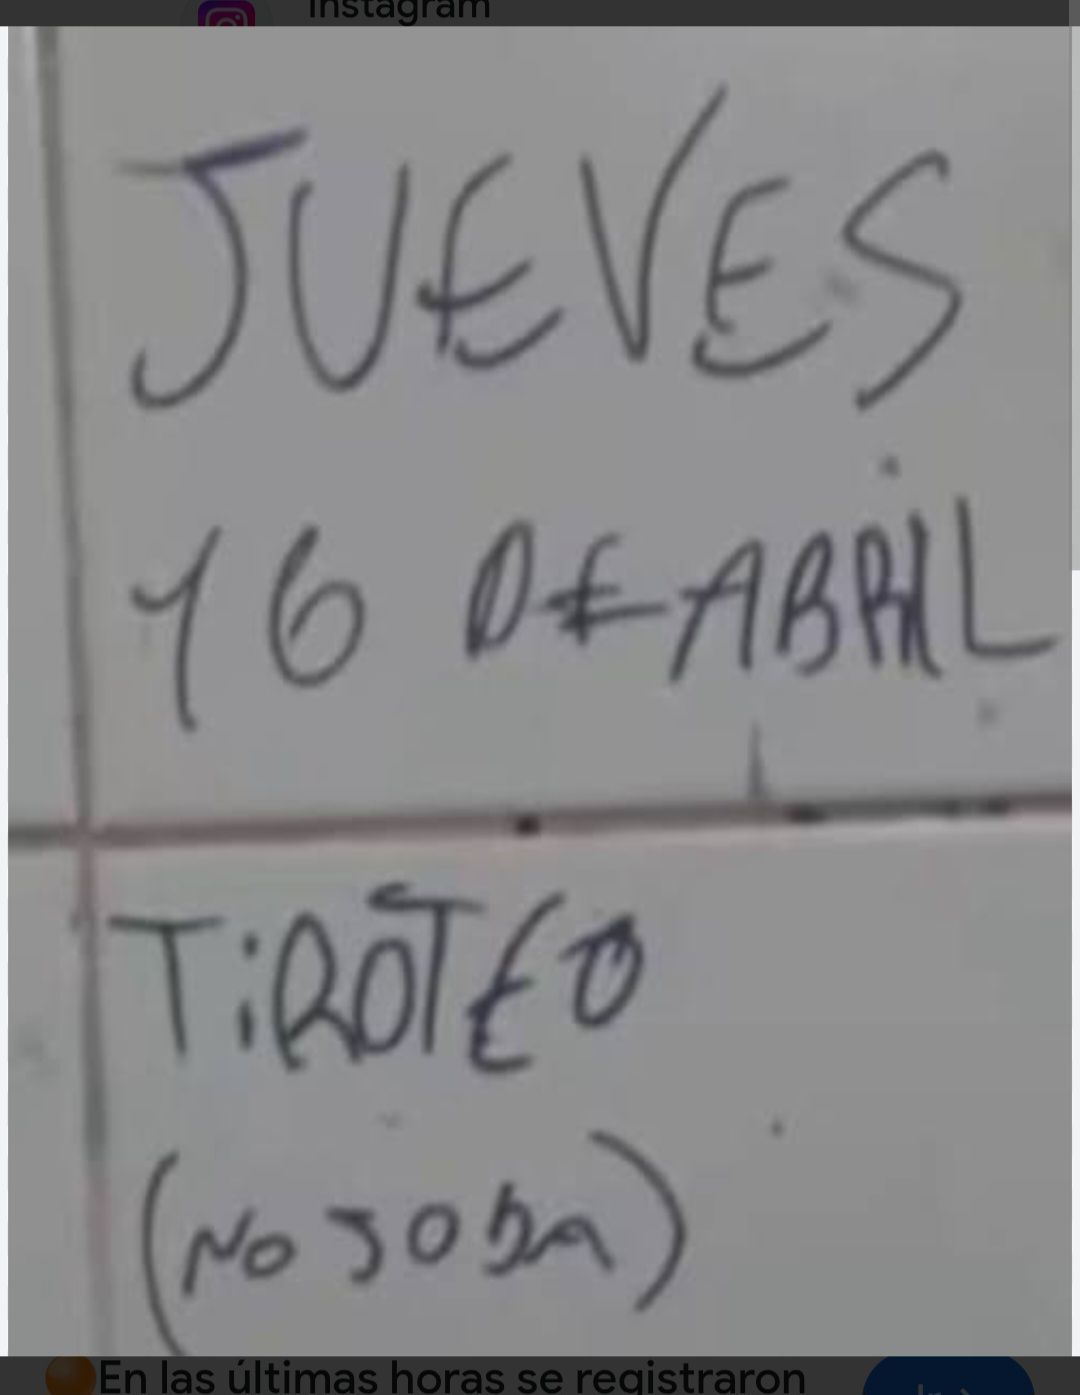 Instagram
JUEVES
16 DE ABRIL
TiROTEO
(NO JODA)
En las últimas horas se registraron